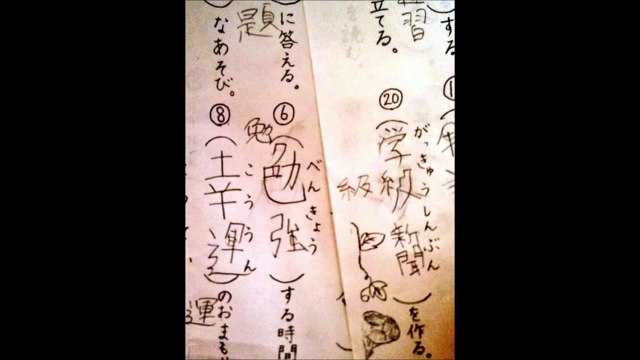 する
習
立てる。
⑳(学級新聞)を作る。
がっきゅうしんぶん
級
を読む。
に答える。
⑥(勉強)する時間
べんきょう
題
勉
なあそび。
⑧(幸運)のおまも
こううん
運